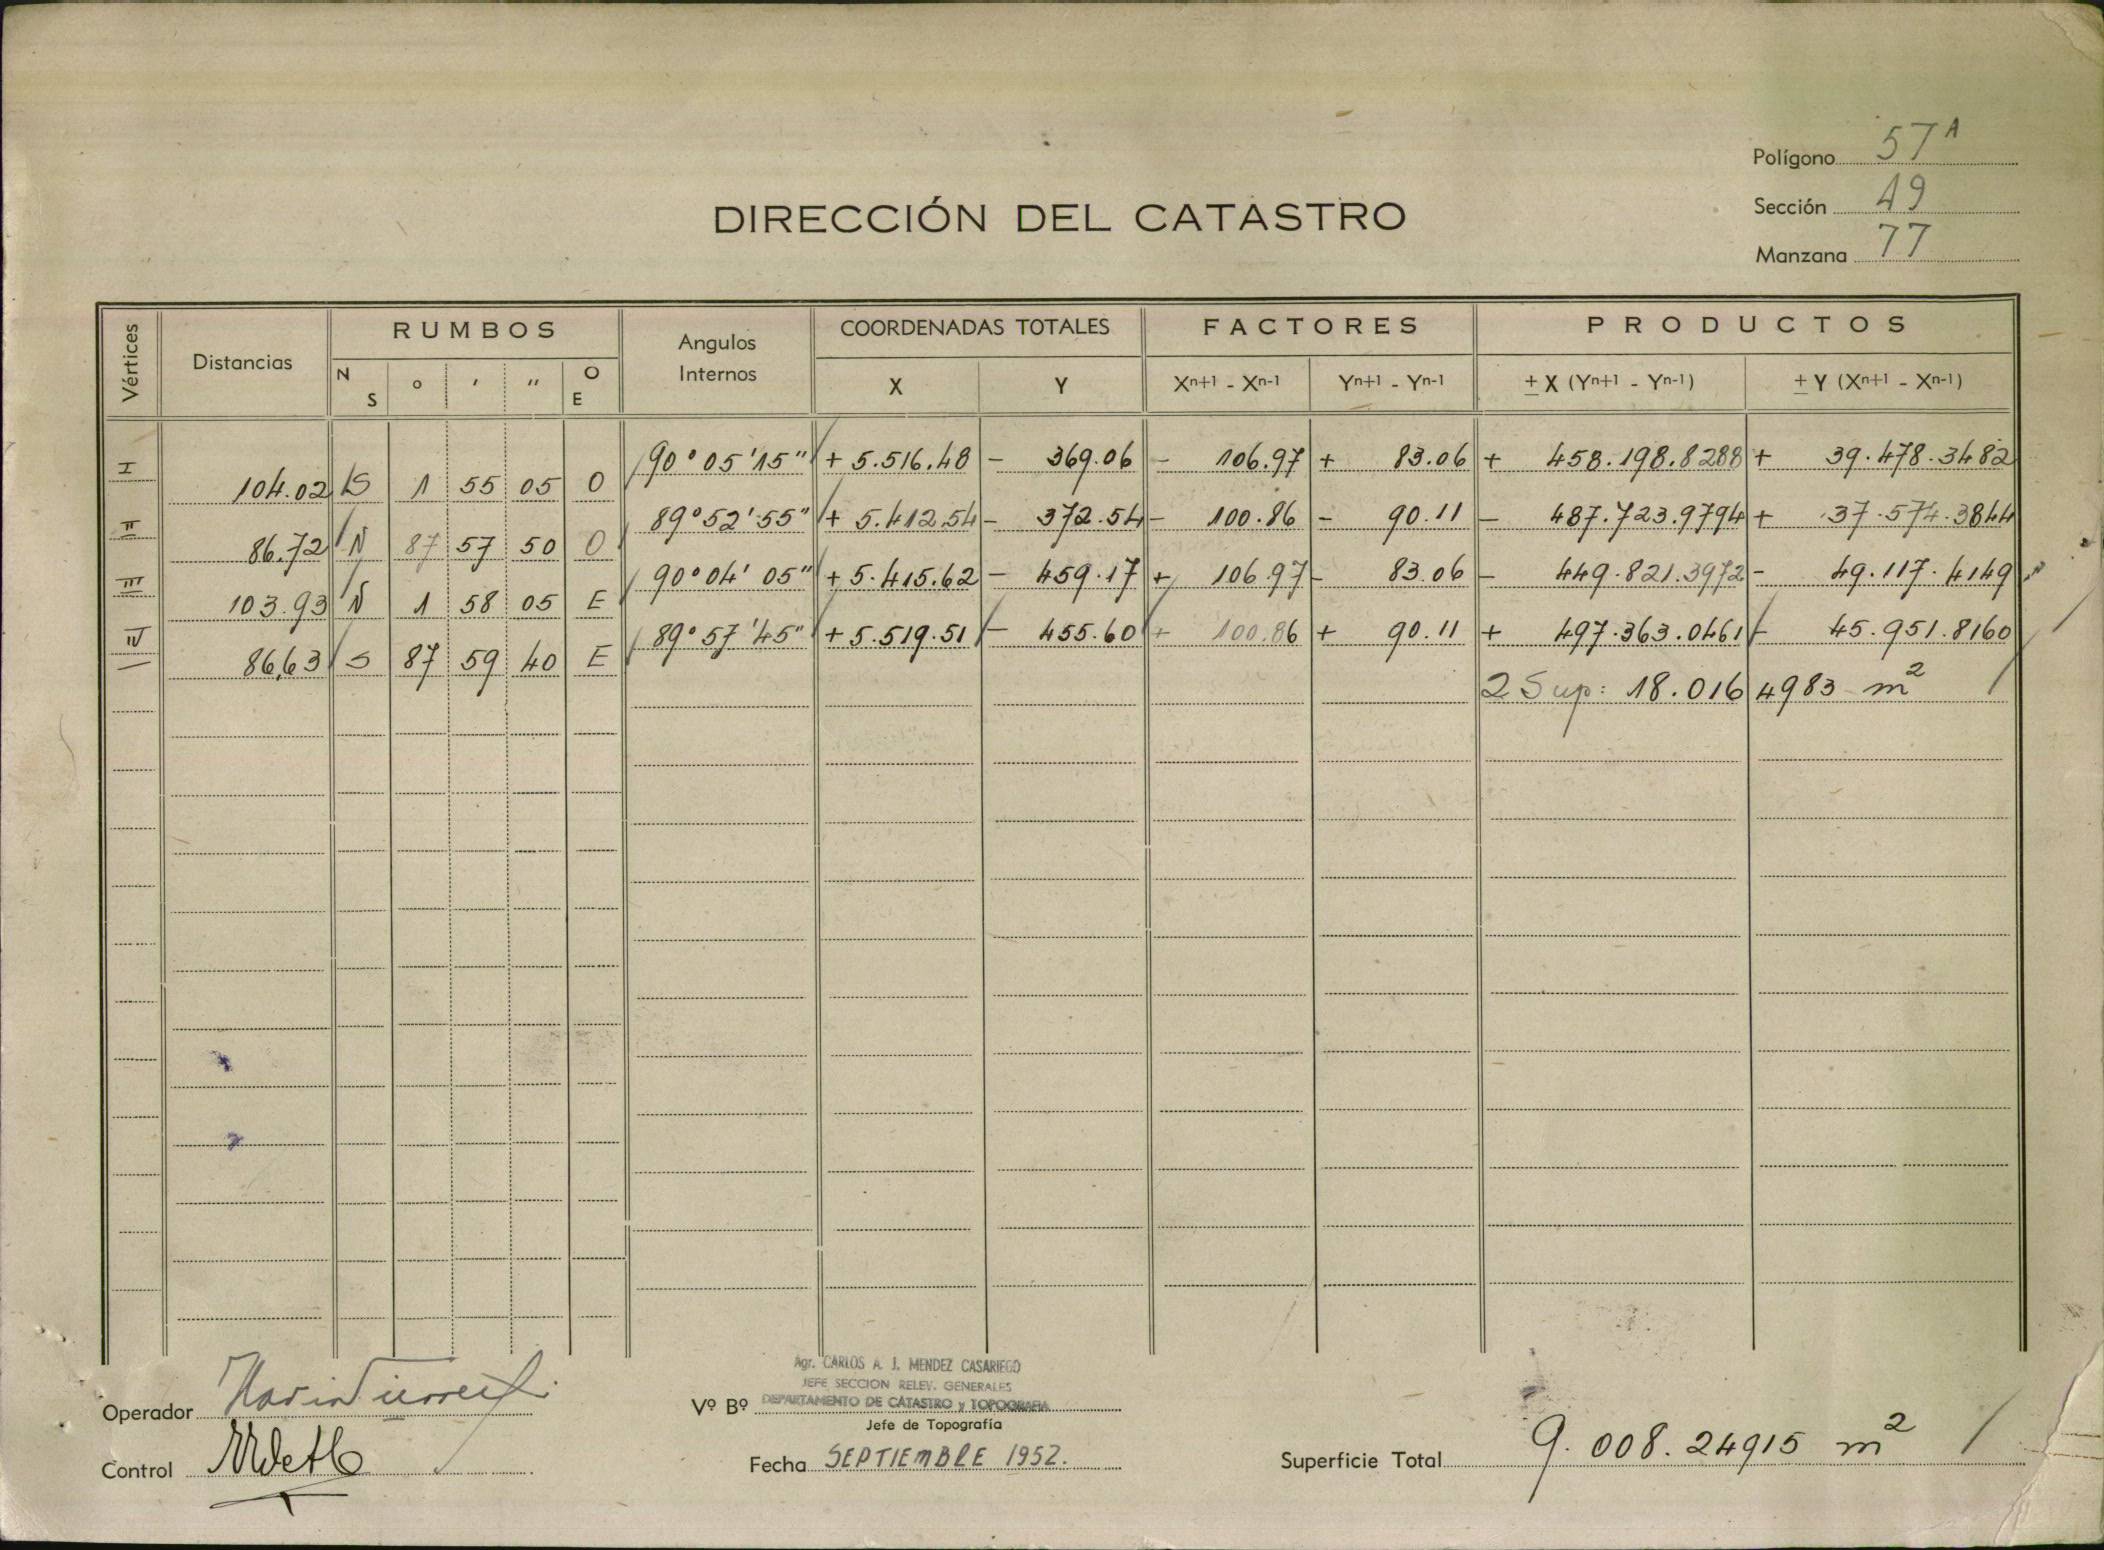 Polígono 57 A
Sección 49
Manzana 77
DIRECCIÓN DEL CATASTRO
Vértices Distancias RUMBOS Angulos Internos COORDENADAS TOTALES FACTORES PRODUCTOS
N S ° ' " O E X Y Xn+1 - Xn-1 Yn+1 - Yn-1 ± X (Yn+1 - Yn-1) ± Y (Xn+1 - Xn-1)
I 90° 05' 15" + 5.516.48 - 369.06 - 106.97 + 83.06 + 458.198.8288 + 39.478.3482
104.02 S 1 55 05 O
II 89° 52' 55" + 5.412.54 - 372.54 - 100.86 - 90.11 - 487.723.9794 + 37.574.3844
86.72 N 87 57 50 O
III 90° 04' 05" + 5.415.62 - 459.17 + 106.97 - 83.06 - 449.821.3972 - 49.117.4149
103.93 N 1 58 05 E
IV 89° 57' 45" + 5.519.51 - 455.60 + 100.86 + 90.11 + 497.363.0461 - 45.951.8160
86,63 S 87 59 40 E
I
2 Sup: 18.016 4983 m²
Agr. CARLOS A. J. MENDEZ CASARIEGO
JEFE SECCION RELEV. GENERALES
DEPARTAMENTO DE CATASTRO y TOPOGRAFIA
Operador
Vº Bº
Jefe de Topografía
Control
Fecha SEPTIEMBRE 1952.
Superficie Total 9.008.24915 m²